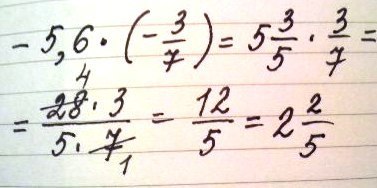 - 5,6 · (- 3/7) = 5 3/5 · 3/7 =
= 28 4 · 3 / 5 · 7 1 = 12/5 = 2 2/5